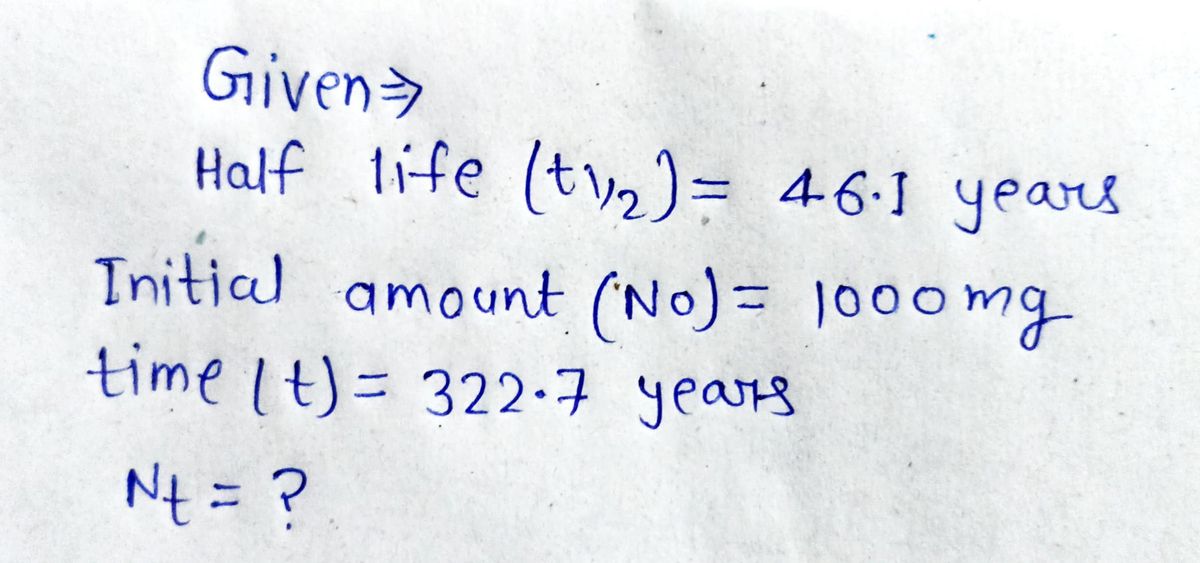 Given⇒
Half life (t1/2) = 46.1 years
Initial amount (No) = 1000 mg
time (t) = 322.7 years
Nt = ?